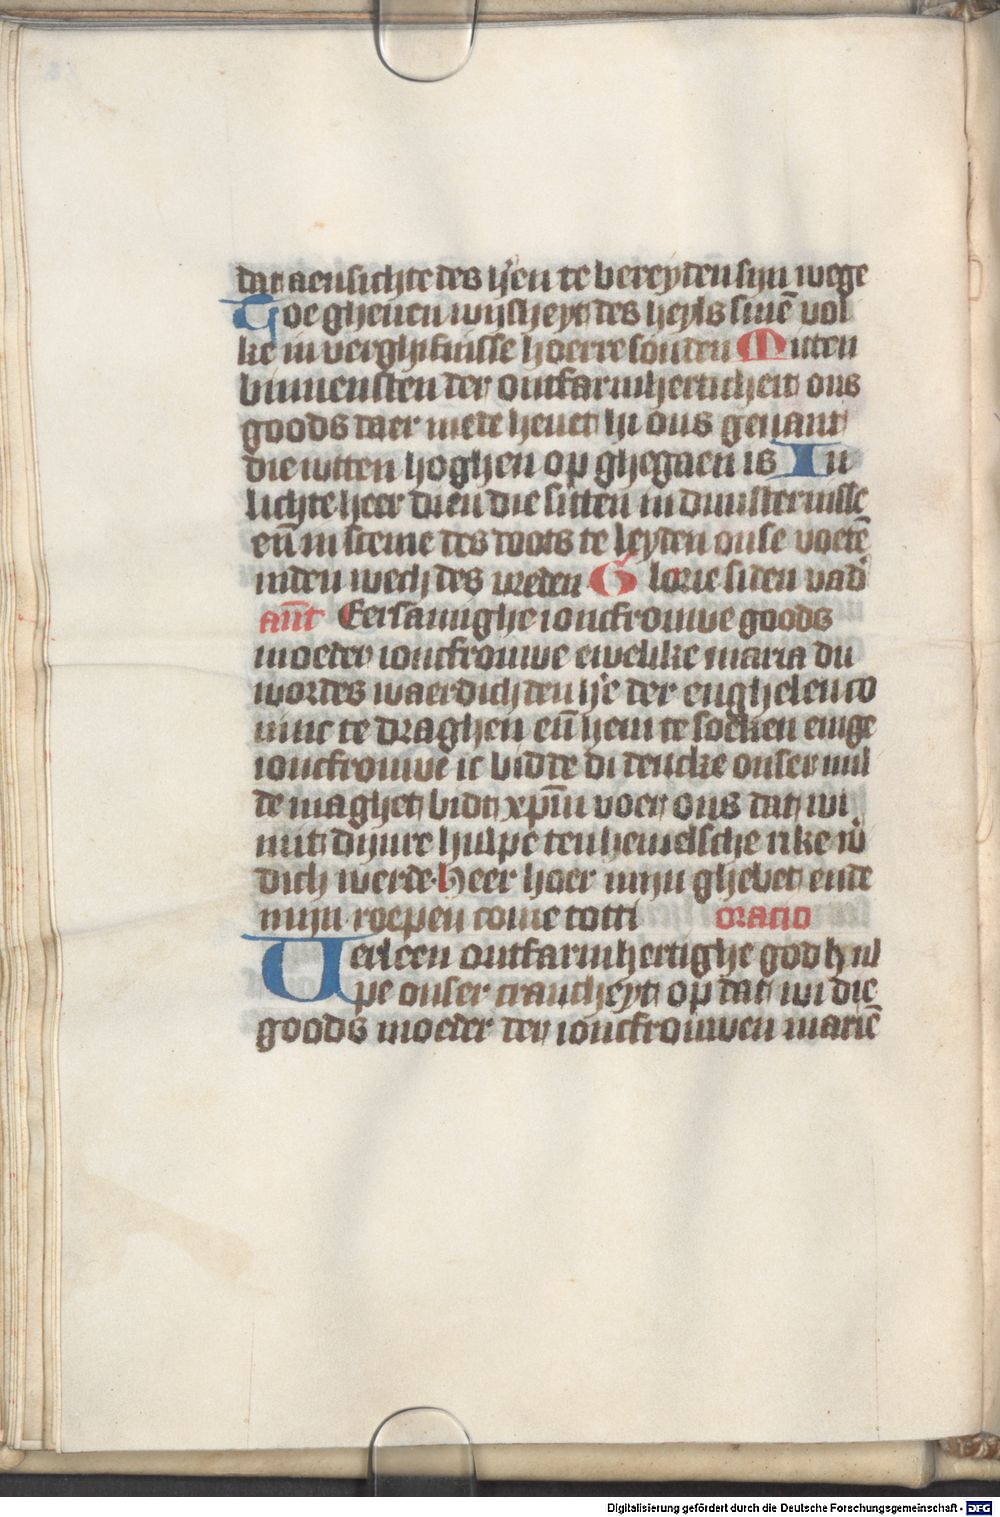 dat aensichte des hẽen te bereyden sijn wege
Toe gheuen wijsheyt des heyls sinẽ vol
ke in verghifnisse hoerre sonden Mitten
binnensten der ontfarmherticheit ons
goods daer mede heuet hi ons geuant
die wtten hoghen op ghegaen is In
lichte heer dien die sitten in duusternisse
eñ in sceme des doots te leyden onse voetẽ
inden wech des vreden Glorie si den vad'
ant̃ Eersamighe ioncfrouwe goods
moeder ioncfrouwe ewelike maria du
wordes waerdich den hẽ der enghelen co
ninc te draghen eñ hem te soeken enige
ioncfrouwe ic bidde di dencke onser mil
de maghet bidt xpm̃ voer ons dat wi
mit dijnre hulpe ten hemelsche rike w'
dich werde. Heer hoer mijn ghebet ende
mijn roepen come totti oratio
Uerleen ontfarmhertighe god hul
pe onser crancheyt op dat wi die
goods moeder der ioncfrouwen mariẽ
Digitalisierung gefördert durch die Deutsche Forschungsgemeinschaft - DFG